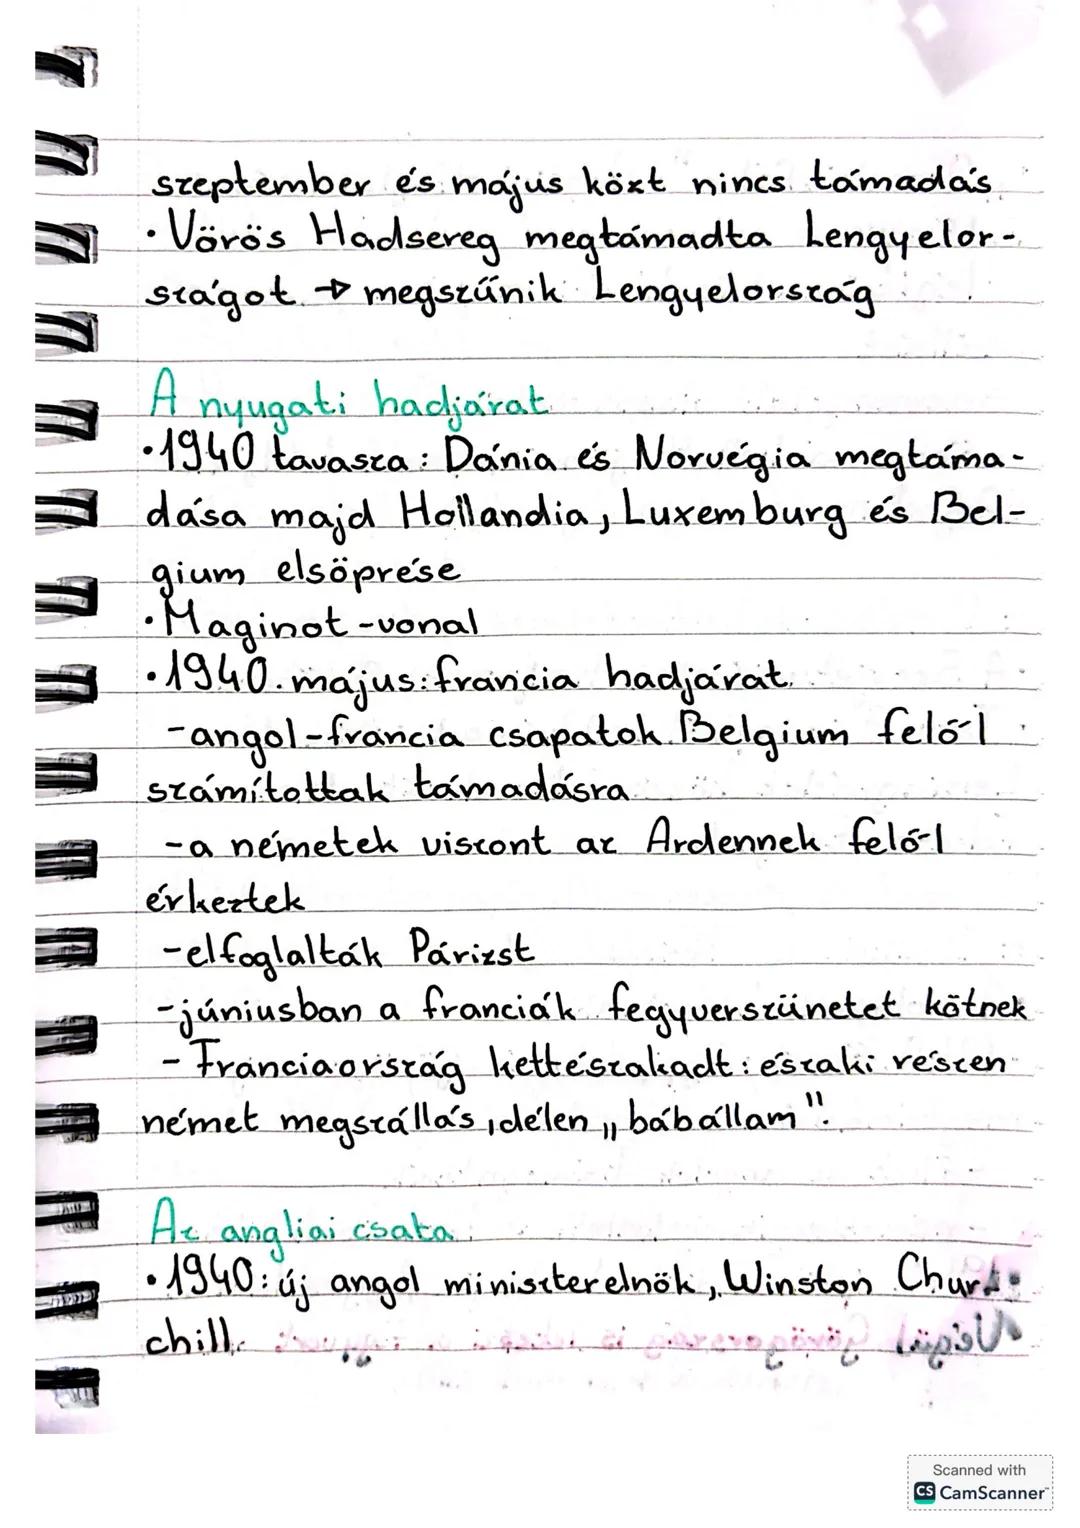 szeptember és május közt nincs támadás
• Vörös Hadsereg megtámadta Lengyelor-
szágot → megszűnik Lengyelország
A nyugati hadjárat
• 1940 tavasza: Dánia és Norvégia megtáma-
dása majd Hollandia, Luxemburg és Bel-
gium elsöprése
• Maginot-vonal
• 1940. május: francia hadjárat
- angol-francia csapatok Belgium felől
számítottak támadásra
- a németek viszont az Ardennek felől
érkeztek
- elfoglalták Párizst
- júniusban a franciák fegyverszünetet kötnek
- Franciaország kettészakadt: északi részen
német megszállás, délen „bábállam".
Az angliai csata
• 1940: új angol miniszterelnök, Winston Chur-
chill
Scanned with
CS CamScanner